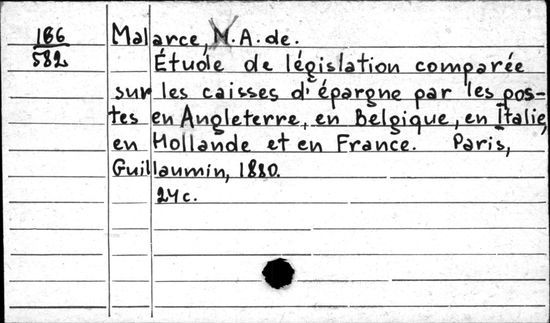 186
582
Malarce, M. A. de.
Étude de législation comparée
sur les caisses d'épargne par les pos-
tes en Angleterre, en Belgique, en Italie,
en Hollande et en France. Paris,
Guillaumin, 1880.
24 c.